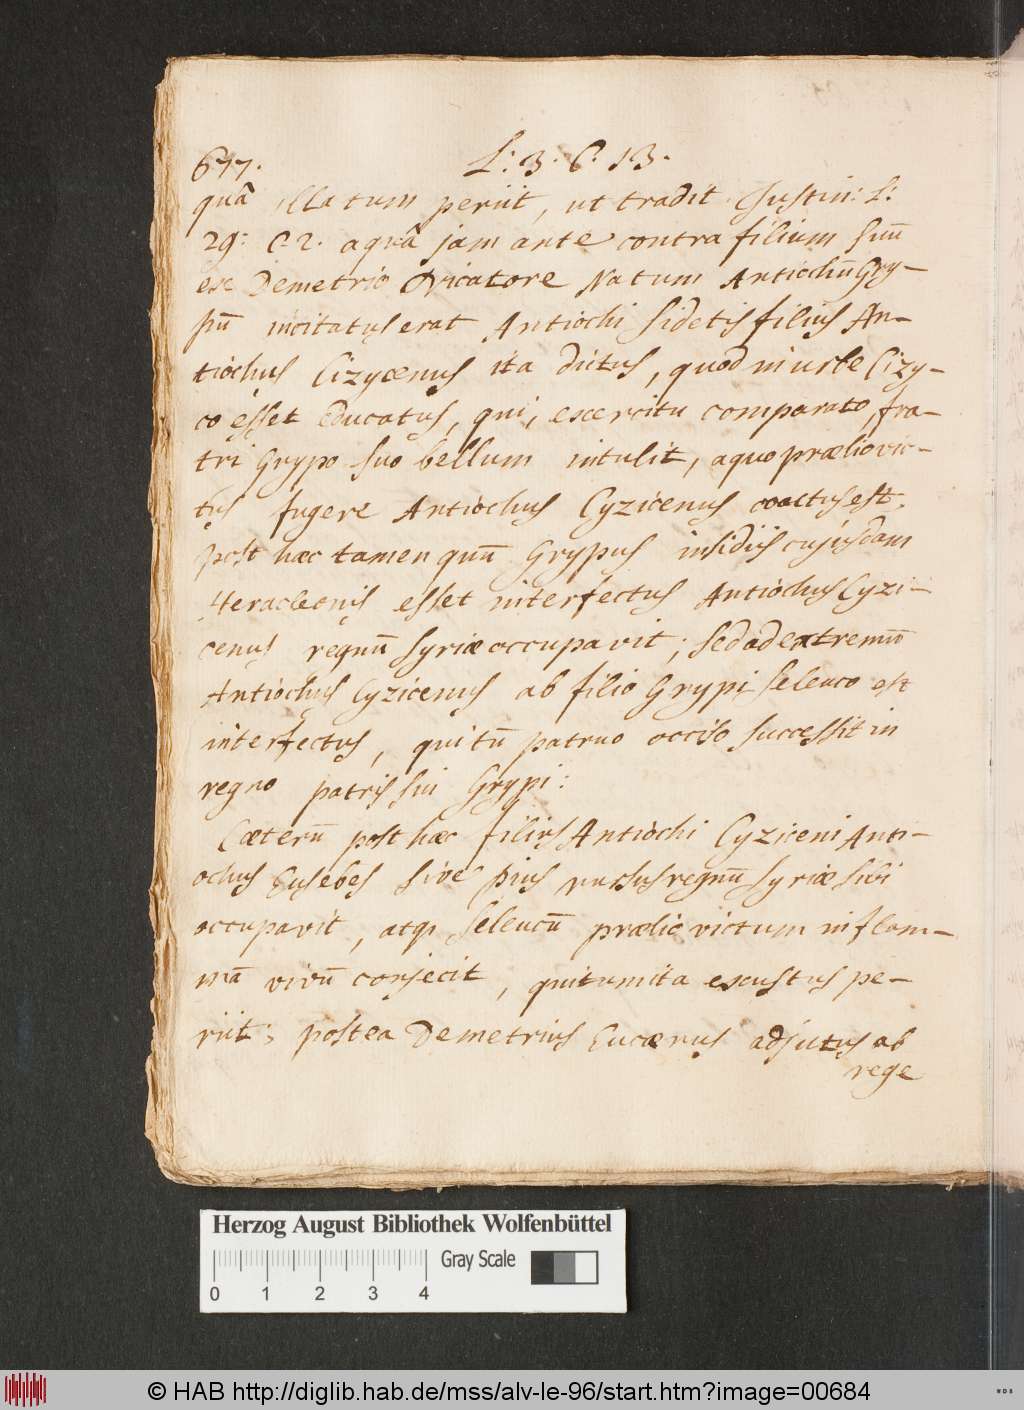 677. L: 3. C. 13.
quâ illatum periit, ut tradit Justin: L:
29: C. 2. a quâ jam ante contra filium suū
ex Demetrio Nicatore Natum Antiochū Gry-
pū incitatus erat Antiochi Sidetis filius An-
tiochus Cizycenus ita dictus, quod in urbe Cizy-
co esset educatus, qui, exercitu comparato, fra-
tri Grypo suo bellum intulit, a quo prælio vic-
tus fugere Antiochus Cyzicenus coactus est,
post hæc tamen quū Grypus insidiis cujusdam
Heracleonis esset interfectus Antiochus Cyzi-
cenus regnū Syriæ occupavit; sed ad extremū
Antiochus Cyzicenus ab filio Grypi Seleuco est
interfectus, qui tū patruo occiso successit in
regno patris sui Grypi:
Cæterū post hæc filius Antiochi Cyziceni Anti-
ochus Eusebes sive Pius rursus regnū Syriæ sibi
occupavit, atq Seleucū prælio victum in flam-
mā vivū conjecit, qui tum ita exustus pe-
riit; postea Demetrius Eucærus adjutus ab
rege
Herzog August Bibliothek Wolfenbüttel
Gray Scale
0 1 2 3 4
© HAB http://diglib.hab.de/mss/alv-le-96/start.htm?image=00684